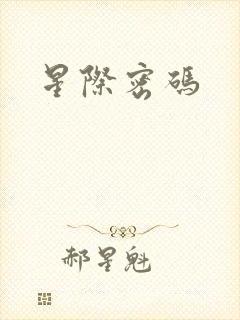 星際密碼
郝星魁